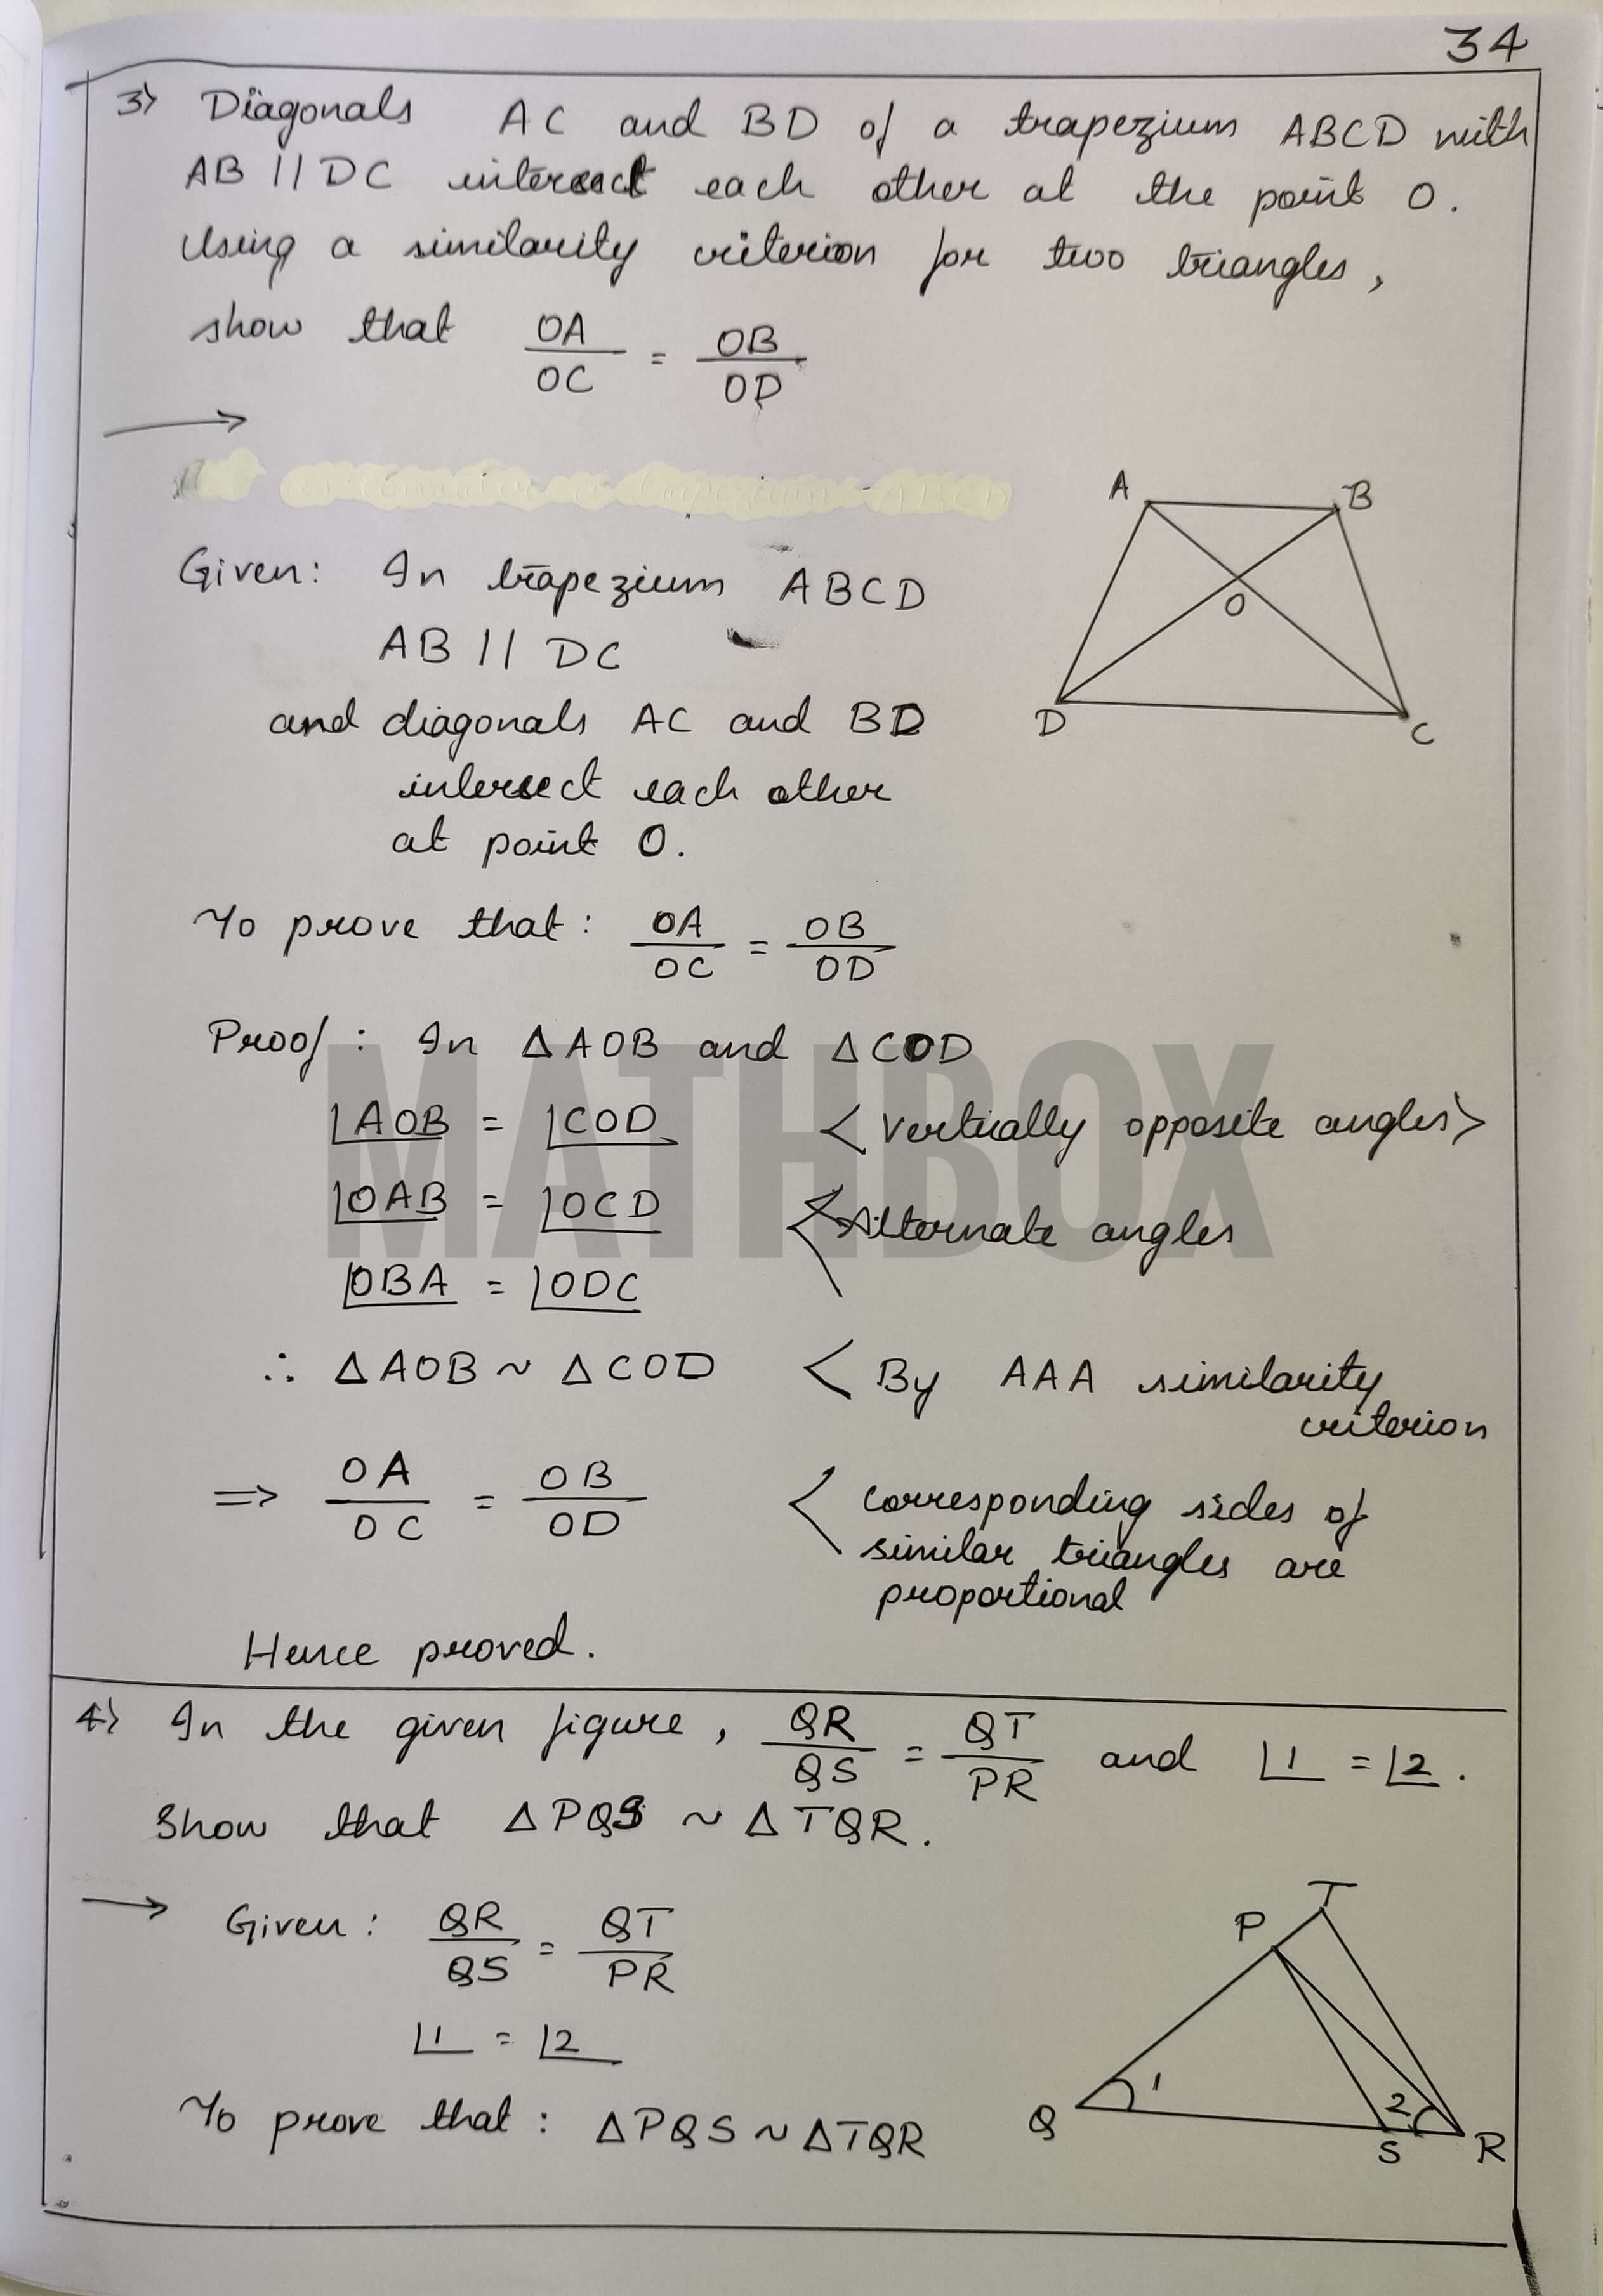 34
3) Diagonals AC and BD of a trapezium ABCD with
AB || DC intersect each other at the point O.
Using a similarity criterion for two triangles,
show that OA/OC = OB/OD
→
Given: In trapezium ABCD
AB || DC
and diagonals AC and BD
intersect each other
at point O.
To prove that: OA/OC = OB/OD
Proof: In ΔAOB and ΔCOD
∠AOB = ∠COD < Vertically opposite angles >
∠OAB = ∠OCD < Alternate angles
∠OBA = ∠ODC
∴ ΔAOB ~ ΔCOD < By AAA similarity
criterion
=> OA/OC = OB/OD < corresponding sides of
similar triangles are
proportional
Hence proved.
4) In the given figure, QR/QS = QT/PR and ∠1 = ∠2.
Show that ΔPQS ~ ΔTQR.
→ Given: QR/QS = QT/PR
∠1 = ∠2
To prove that: ΔPQS ~ ΔTQR
A B
O
D C
T
P
1 2
Q S R
MATHBOX